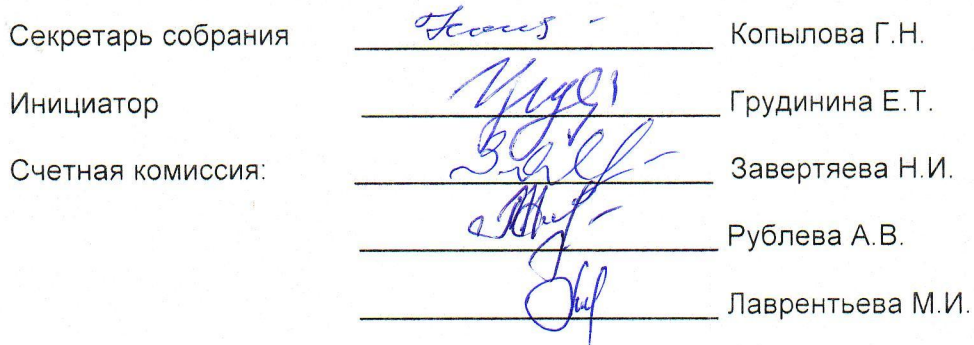 Секретарь собрания Копылова Г.Н.
Инициатор Грудинина Е.Т.
Счетная комиссия: Завертяева Н.И.
Рублева А.В.
Лаврентьева М.И.